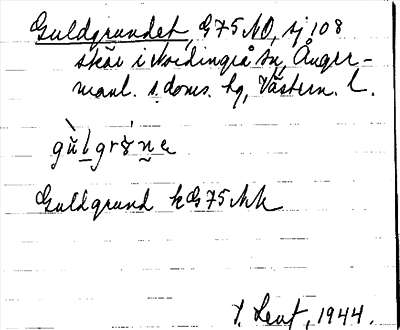 Guldgrundet, G75NO, sj 108
skär i Nordingrå sn, Ånger-
manl. s. doms. hg, Västern. l.
gùl̲grón̲e
Guldgrund kG75Nk
1944.